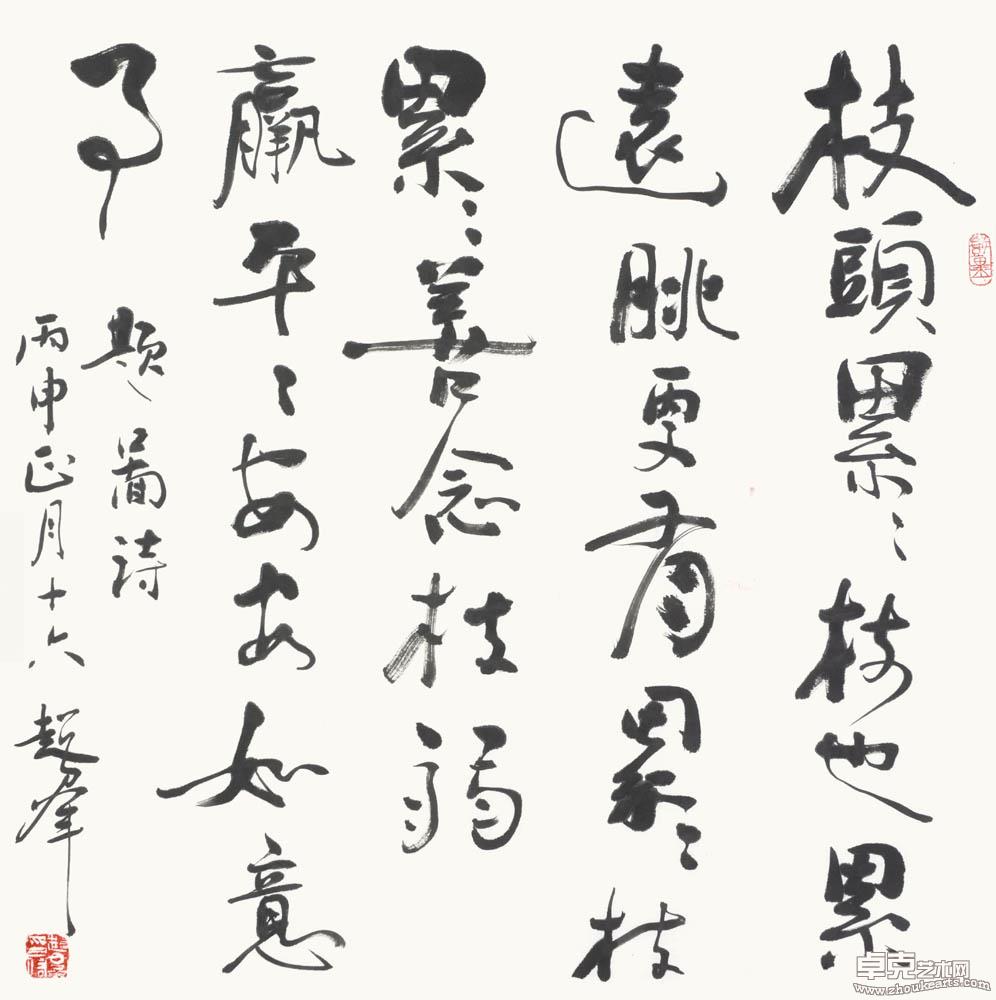 枝頭累々枝也累
遠眺更有累々枝
累々善念枝弱
羸平々安安如意
事
題圖詩
丙申正月十六
卓克艺术网
www.zhoukearts.com